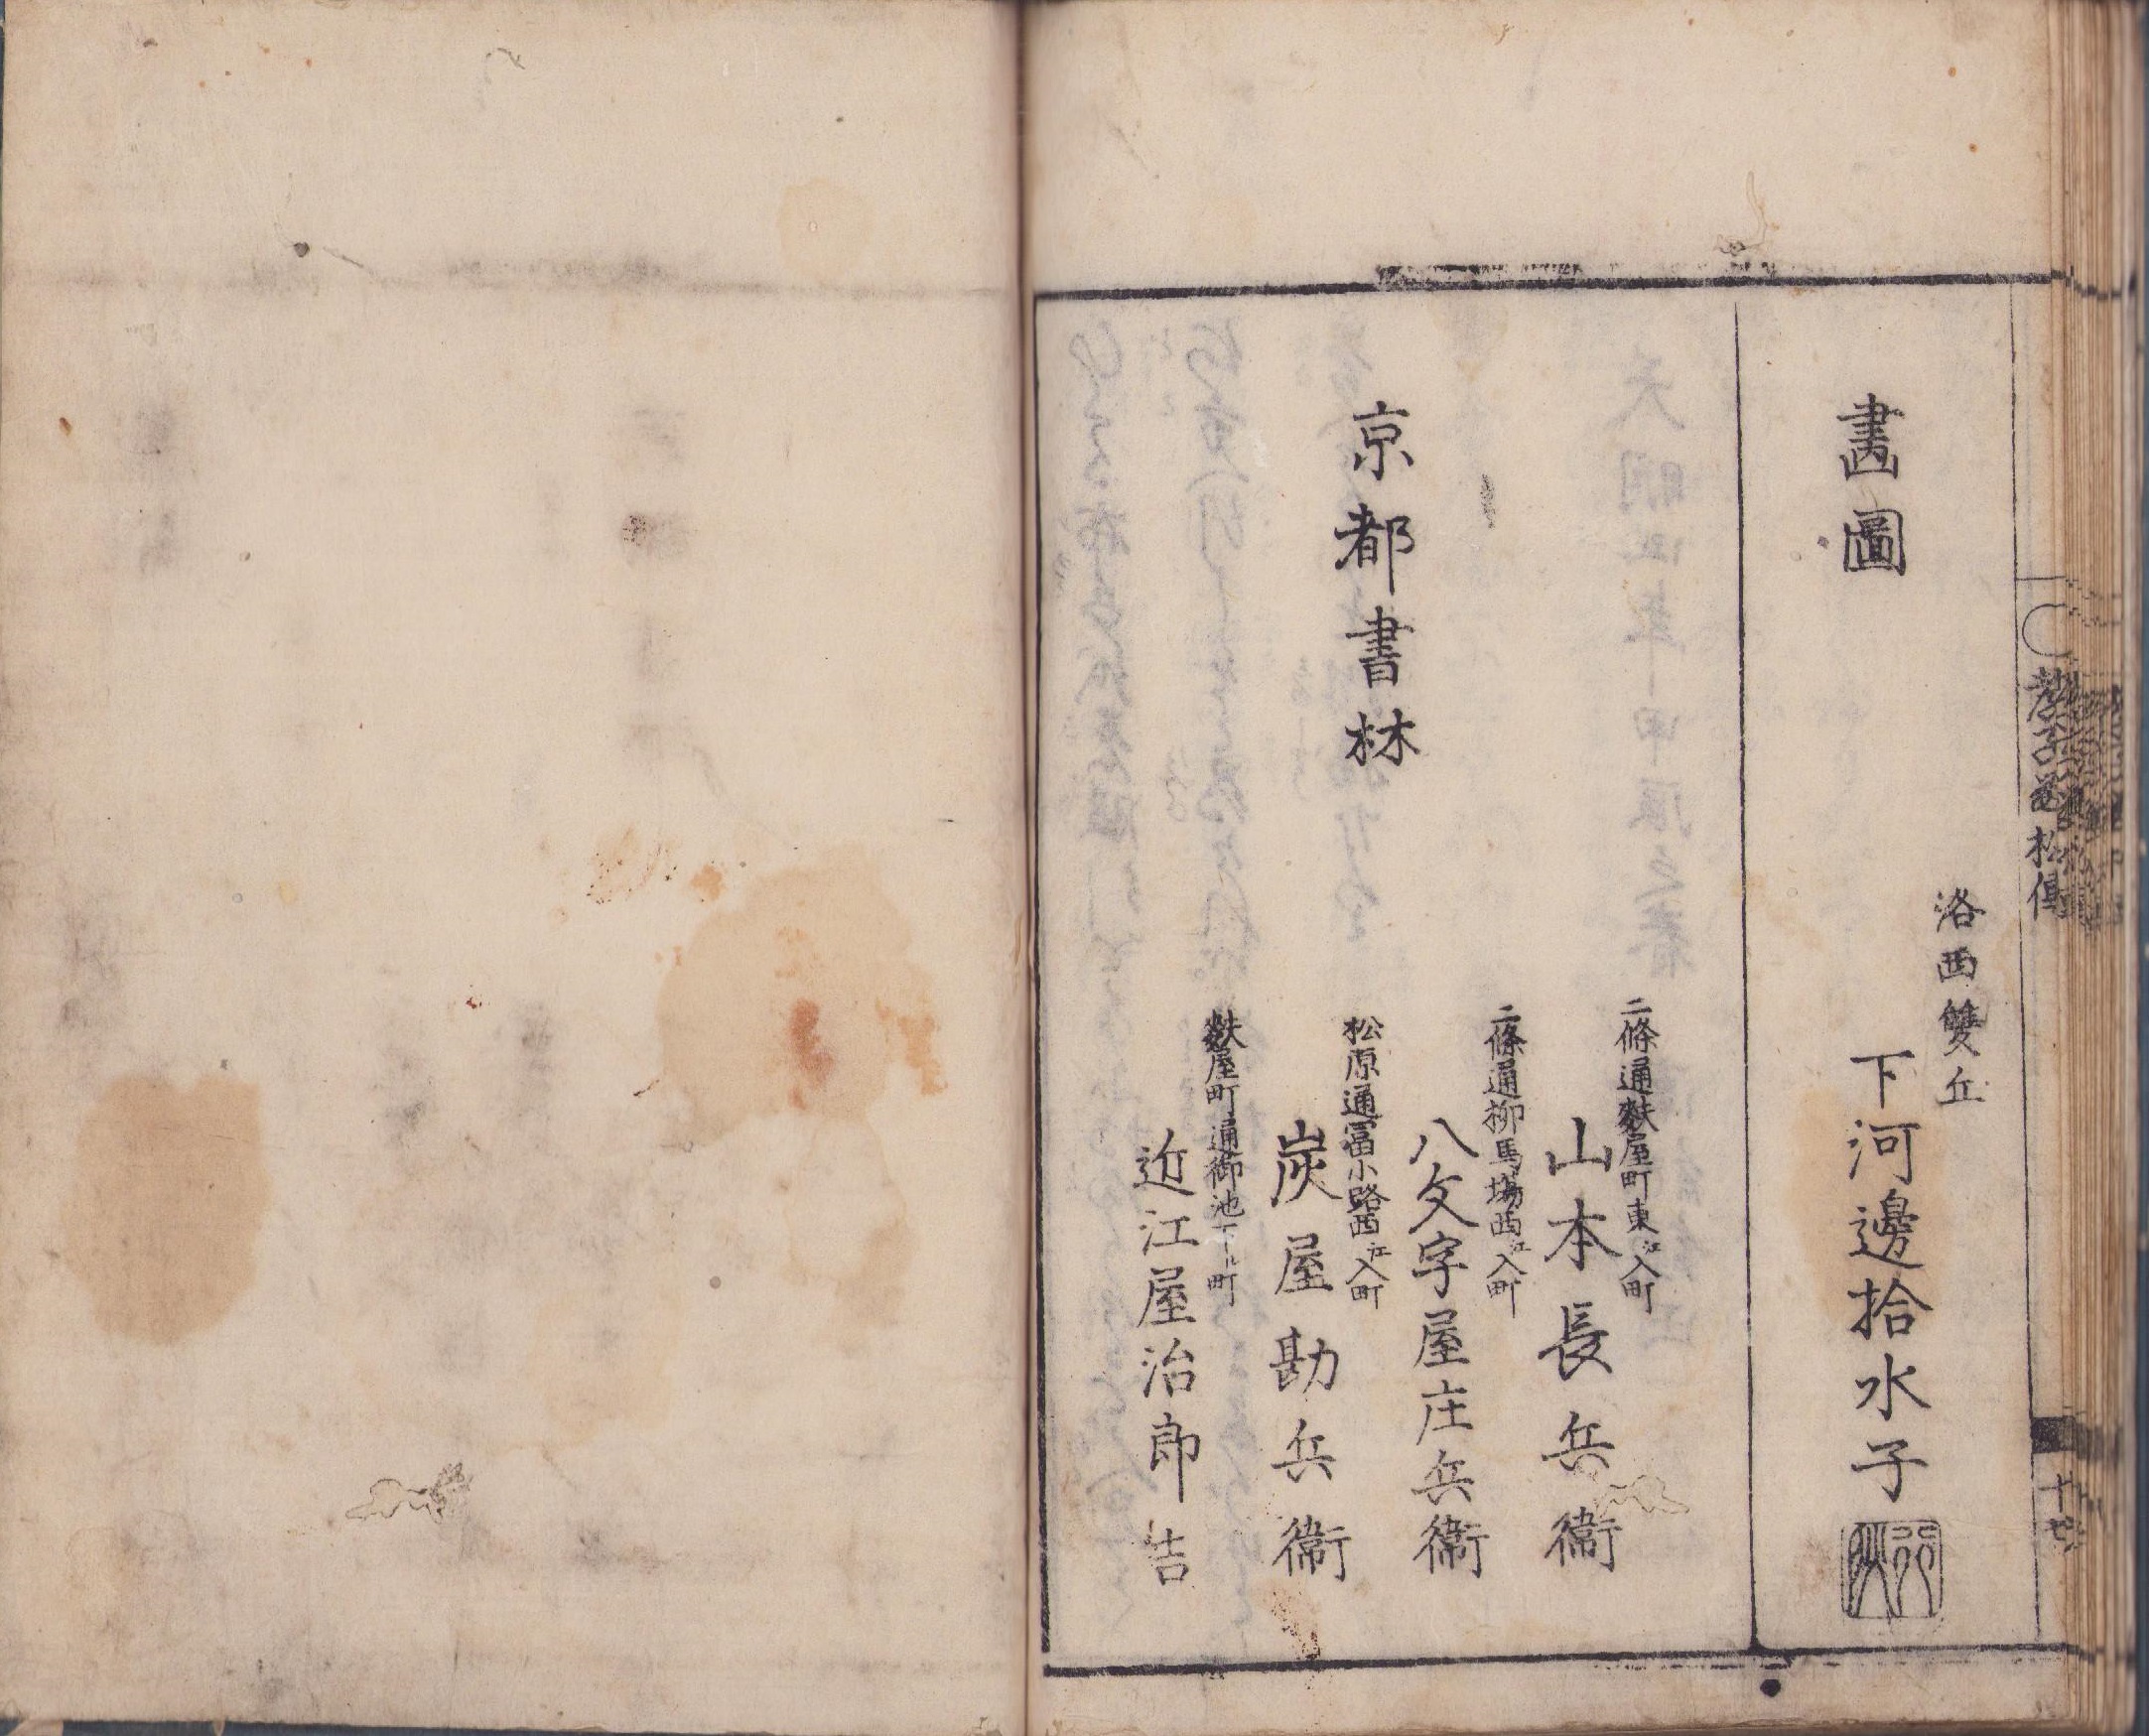 畫圖
洛西雙丘
下河邊拾水子
京都書林
二條通麩屋町東江入町
山本長兵衞
二條通柳馬場西江入町
八文字屋庄兵衞
松原通冨小路西江入町
炭屋勘兵衞
麩屋町通御池下ル町
近江屋治郎吉